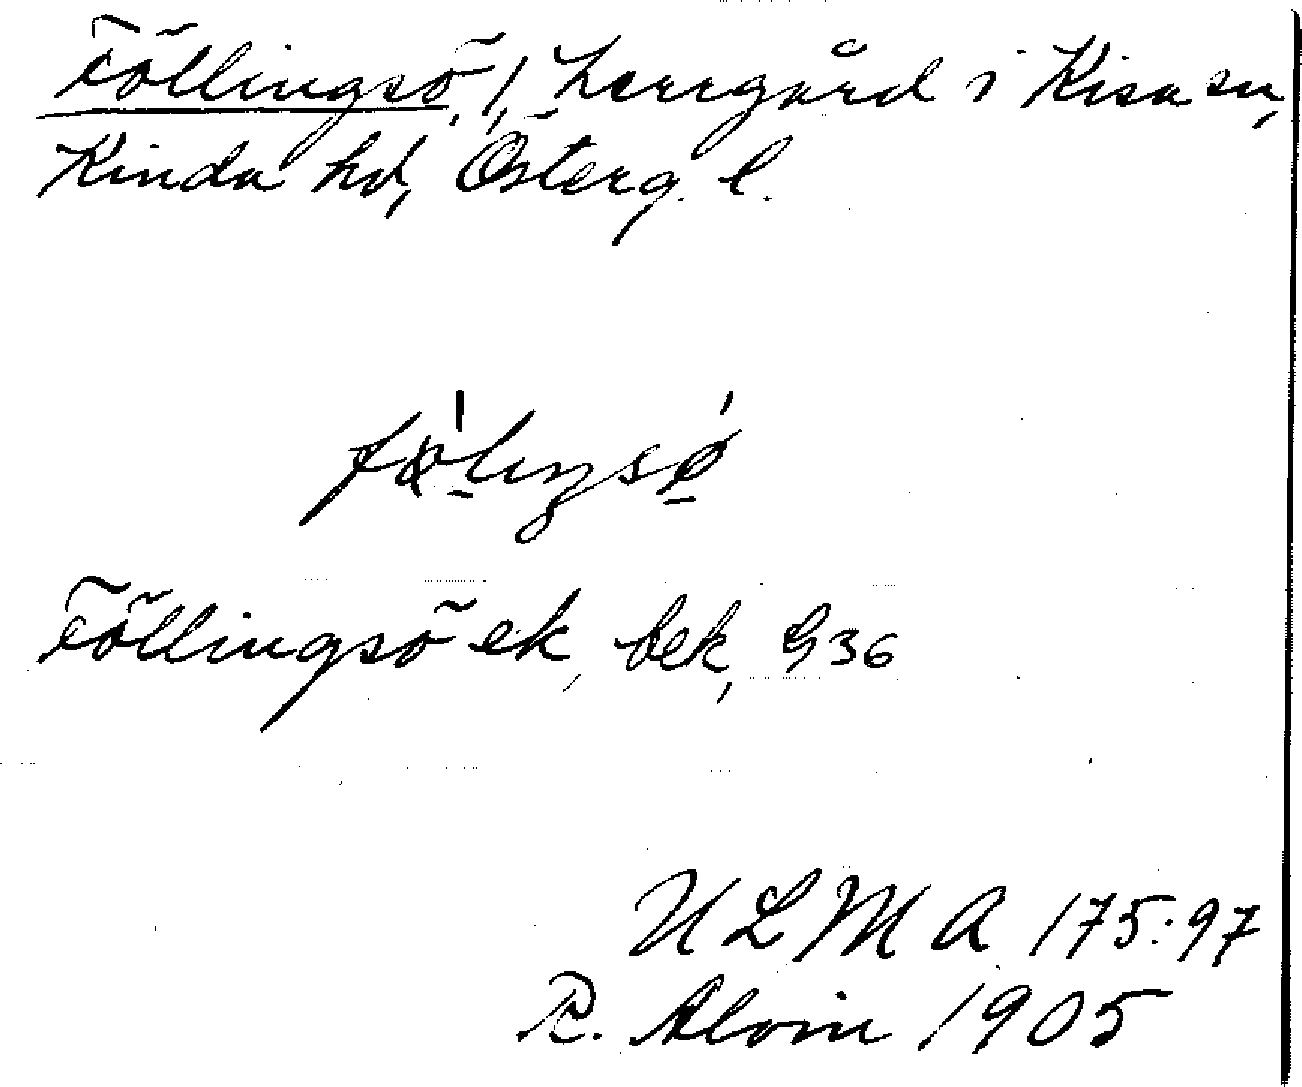 Föllingsö, 1, herrgård i Kisa sn,
Kinda hd, Österg. l.
Föllingsö ek, bek, G 36
ULMA 175:97
R. Alvin 1905